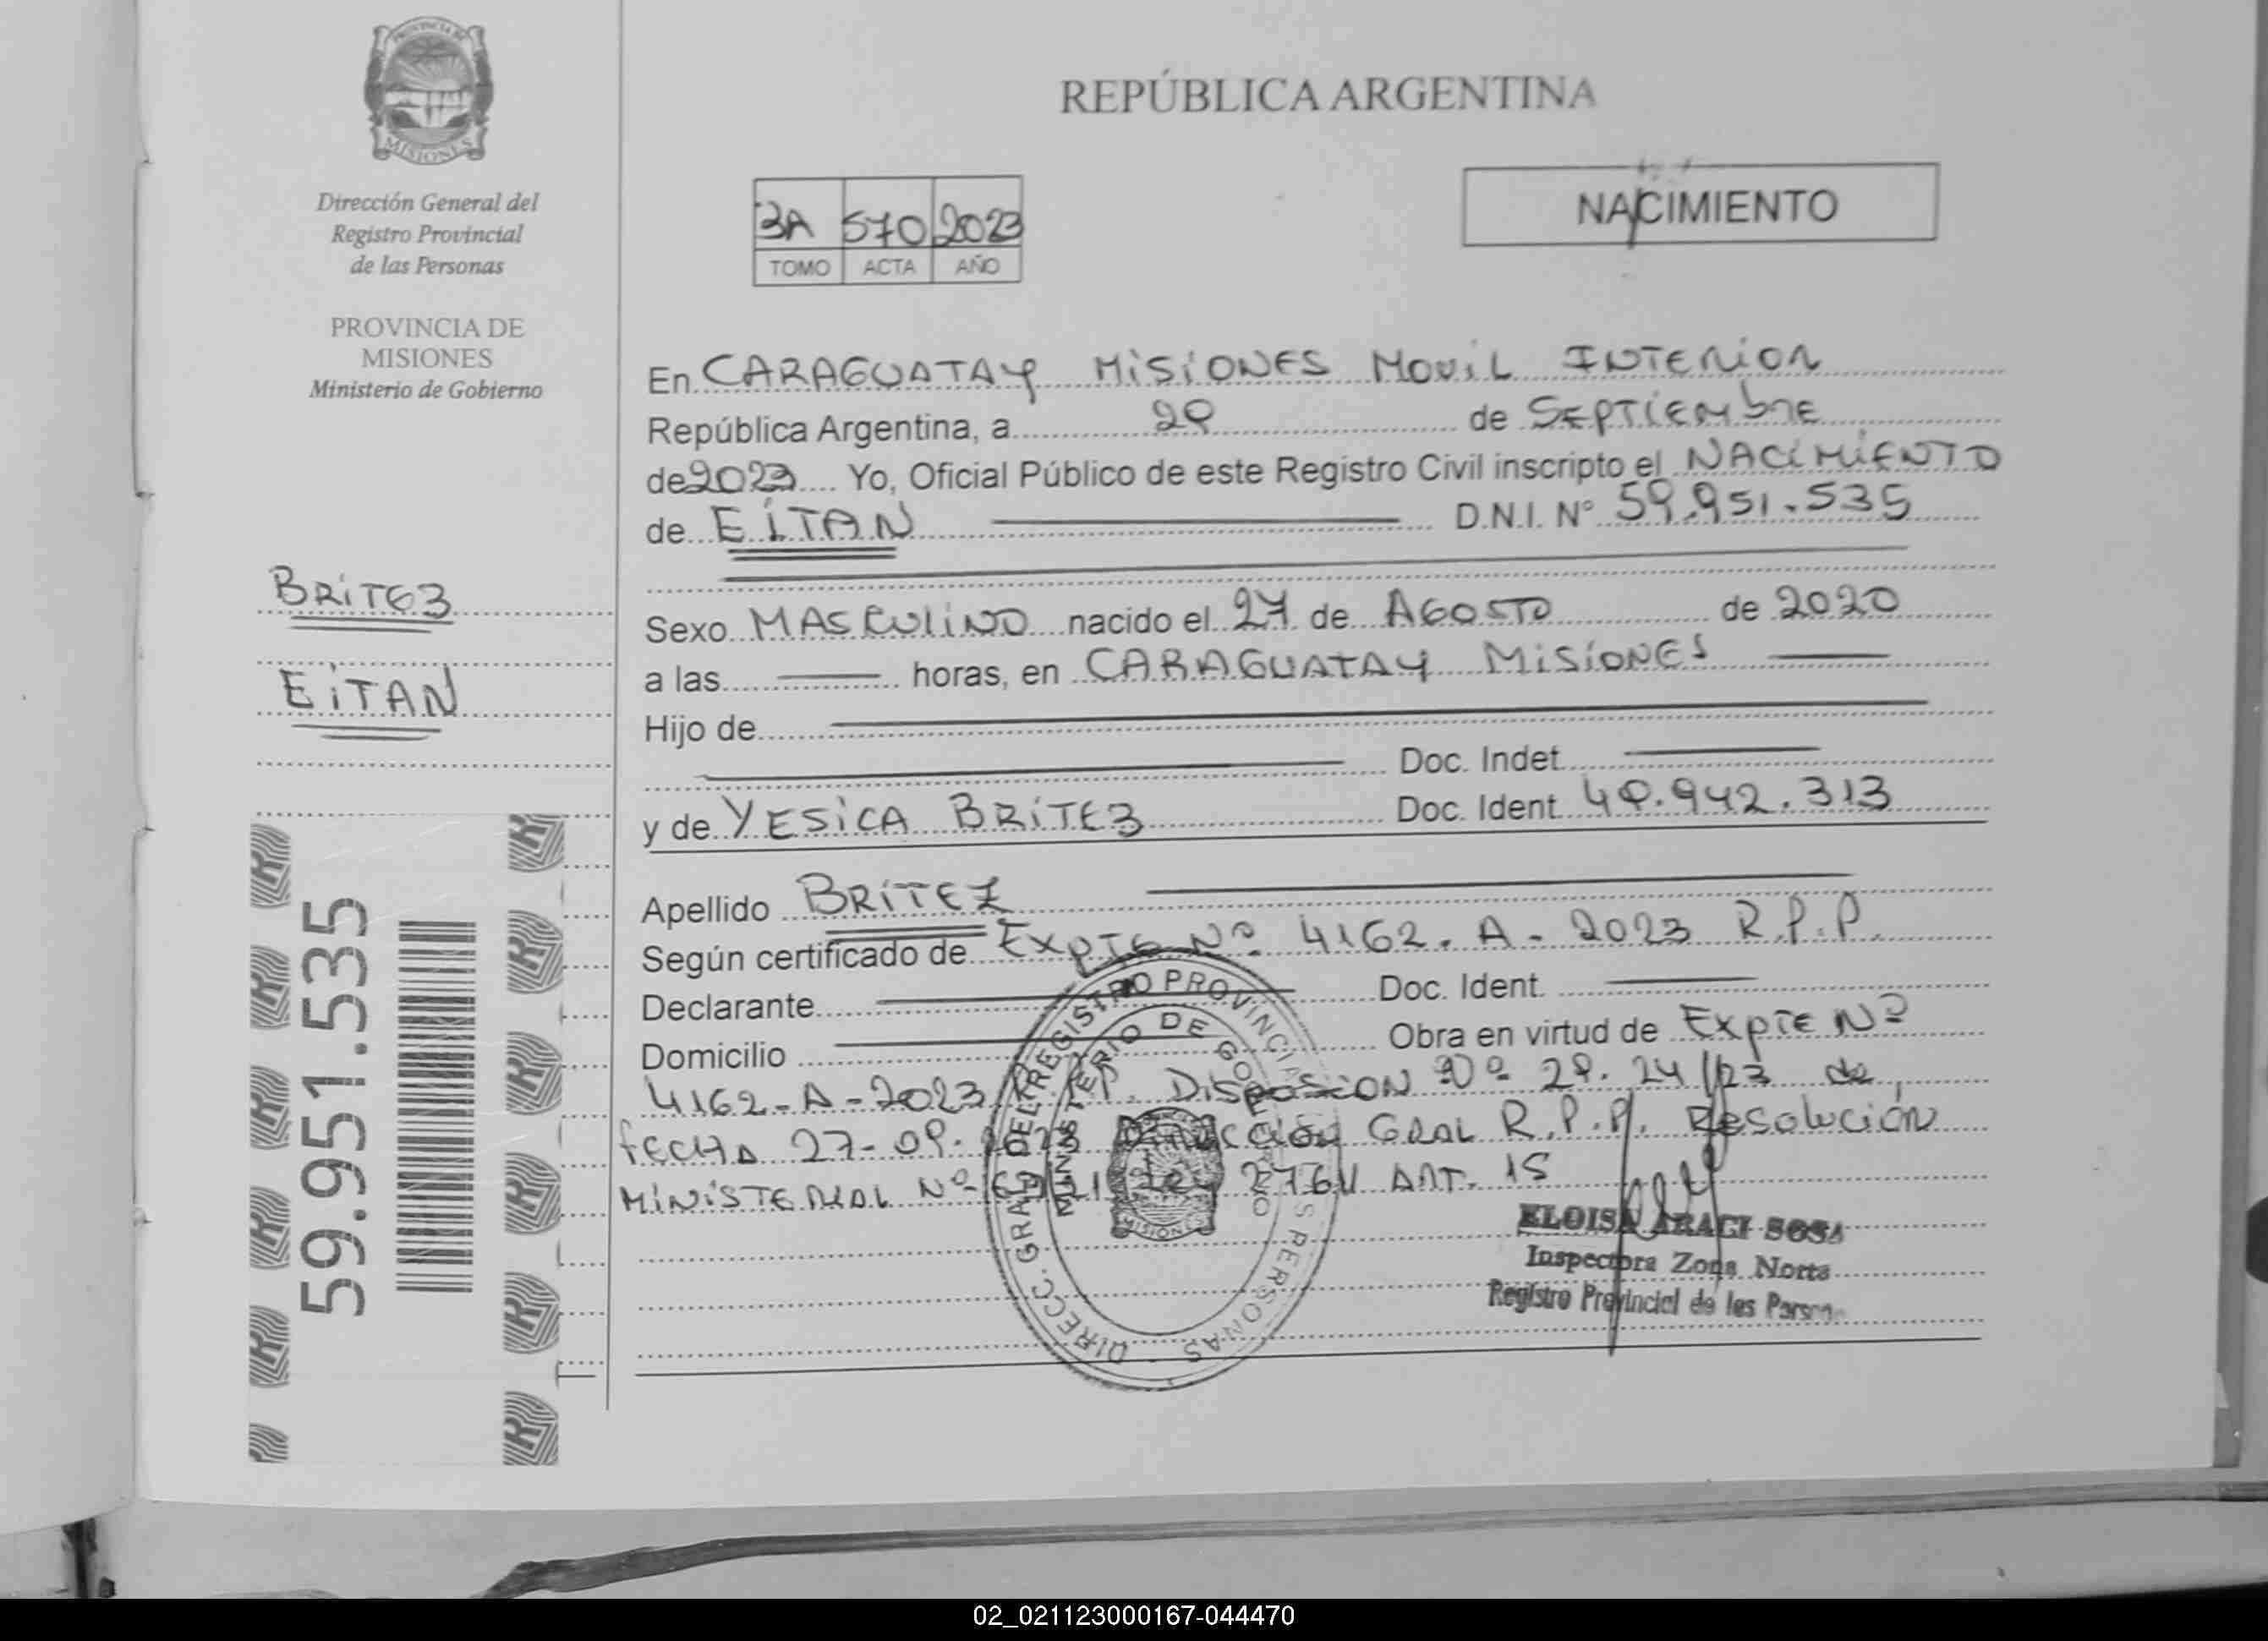 PROVINCIA DE
MISIONES
Dirección General del
Registro Provincial
de las Personas
PROVINCIA DE
MISIONES
Ministerio de Gobierno
BRITEZ
EITAN
59.951.535
REPÚBLICA ARGENTINA
NACIMIENTO
3A 570 2023
TOMO ACTA AÑO
En CARAGUATAY MISIONES MOVIL INTERIOR
República Argentina, a de SEPTIEMBRE
de 2023 Yo, Oficial Público de este Registro Civil inscripto el NACIMIENTO
de EITAN D.N.I. N° 59.951.535
Sexo MASCULINO nacido el 27 de AGOSTO de 2020
a las horas, en CARAGUATAY MISIONES
Hijo de
Doc. Indet.
y de YESICA BRITEZ Doc. Ident. 40.942.313
Apellido BRITEZ
Según certificado de EXPTE Nº 4162-A-2023 R.P.P.
Declarante Doc. Ident.
Domicilio Obra en virtud de EXPTE Nº
4162-A-2023 DISPOSICION Nº 24/23 de
FECHA 27-09-2023 Dirección GRAL R.P.P. Resolución
MINISTERIAL Nº ART. 15
DIRECC. GRAL DEL REGISTRO PROVINCIAL PERSONAS
MINISTERIO DE GOBIERNO
MISIONES
ELOISA ARACI SOSA
Inspectora Zona Norte
Registro Provincial de las Person
02_021123000167-044470